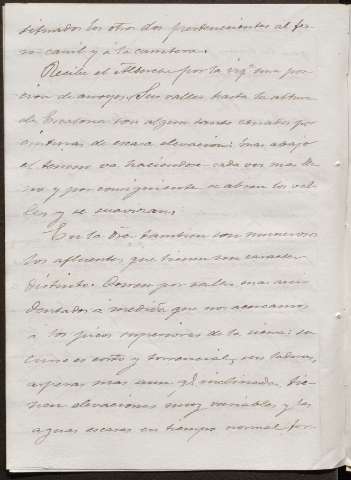 situados los otros dos pertenecientes al fer-
ro-carril y á la carretera.
Recibe el Alberche por la izqª una por
cion de arroyos. Sus valles hasta la altura
de Escalona son algun tanto cerrados por
colinas de escasa elevacion: mas abajo
el terreno va haciendose cada vez mas lla
no y por consiguiente se abren los va-
lles y se suavizan.
En la dra tambien son numerosos
los afluentes que tienen un caracter
distinto. Corren por valles mas acci
dentados á medida que nos acercamos
á los picos superiores de la sierra: su
curso es corto y torrencial, sus laderas,
asperas mas aun qe inclinadas tie-
nen elevaciones muy variables y las
aguas escasas en tiempo normal for-